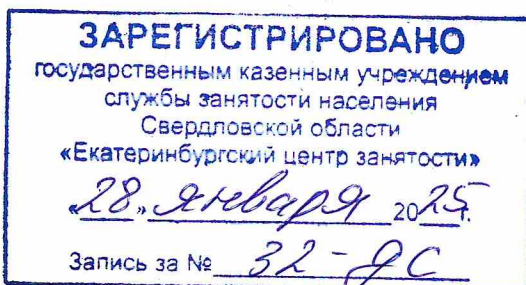 ЗАРЕГИСТРИРОВАНО
государственным казенным учреждением
службы занятости населения
Свердловской области
«Екатеринбургский центр занятости»
«28» января 2025г.
Запись за № 32-ДС